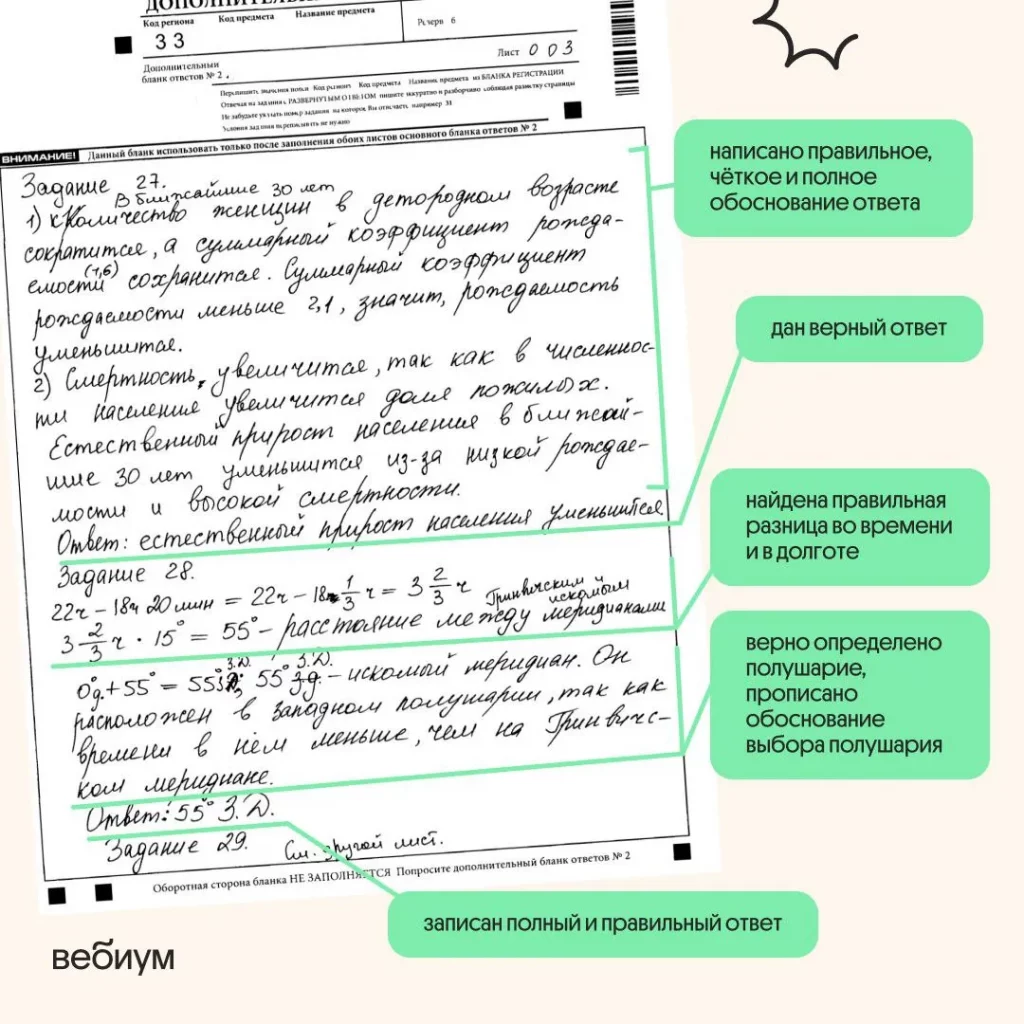 ДОПОЛНИТЕЛЬН
Код региона Код предмета Название предмета
33
Резерв 6
Дополнительный
бланк ответов № 2.
Лист 003
Перепишите значения полей Код региона Код предмета Название предмета из БЛАНКА РЕГИСТРАЦИИ
Отвечая на задания с РАЗВЕРНУТЫМ ОТВЕТОМ пишите аккуратно и разборчиво соблюдая разметку страницы
Не забудьте указать номер задания на которое Вы отвечаете, например 31
Условия задания переписывать не нужно
ВНИМАНИЕ! Данный бланк использовать только после заполнения обоих листов основного бланка ответов № 2
Задание 27.
В ближайшие 30 лет
1) Количество женщин в детородном возрасте
сократится, а суммарный коэффициент рожда-
емости (1,6) сохранится. Суммарный коэффициент
рождаемости меньше 2,1, значит, рождаемость
уменьшится.
2) Смертность увеличится, так как в численнос-
ти населения увеличится доля пожилых.
Естественный прирост населения в ближай-
шие 30 лет уменьшится из-за низкой рождае-
мости и высокой смертности.
Ответ: естественный прирост населения уменьшится
Задание 28.
22ч – 18ч 20 мин = 22ч – 18 1/3 ч = 3 2/3 ч
Гринвичским и
искомым
3 2/3 ч · 15° = 55° – расстояние между меридианами
0° + 55° = 55° з.д. 55° з.д. – искомый меридиан. Он
расположен в западном полушарии, так как
времени в нём меньше, чем на Гринвичс-
ком меридиане.
Ответ: 55° з.д.
Задание 29. См. другой лист.
Оборотная сторона бланка НЕ ЗАПОЛНЯЕТСЯ Попросите дополнительный бланк ответов № 2
написано правильное,
чёткое и полное
обоснование ответа
дан верный ответ
найдена правильная
разница во времени
и в долготе
верно определено
полушарие,
прописано
обоснование
выбора полушария
записан полный и правильный ответ
вебиум